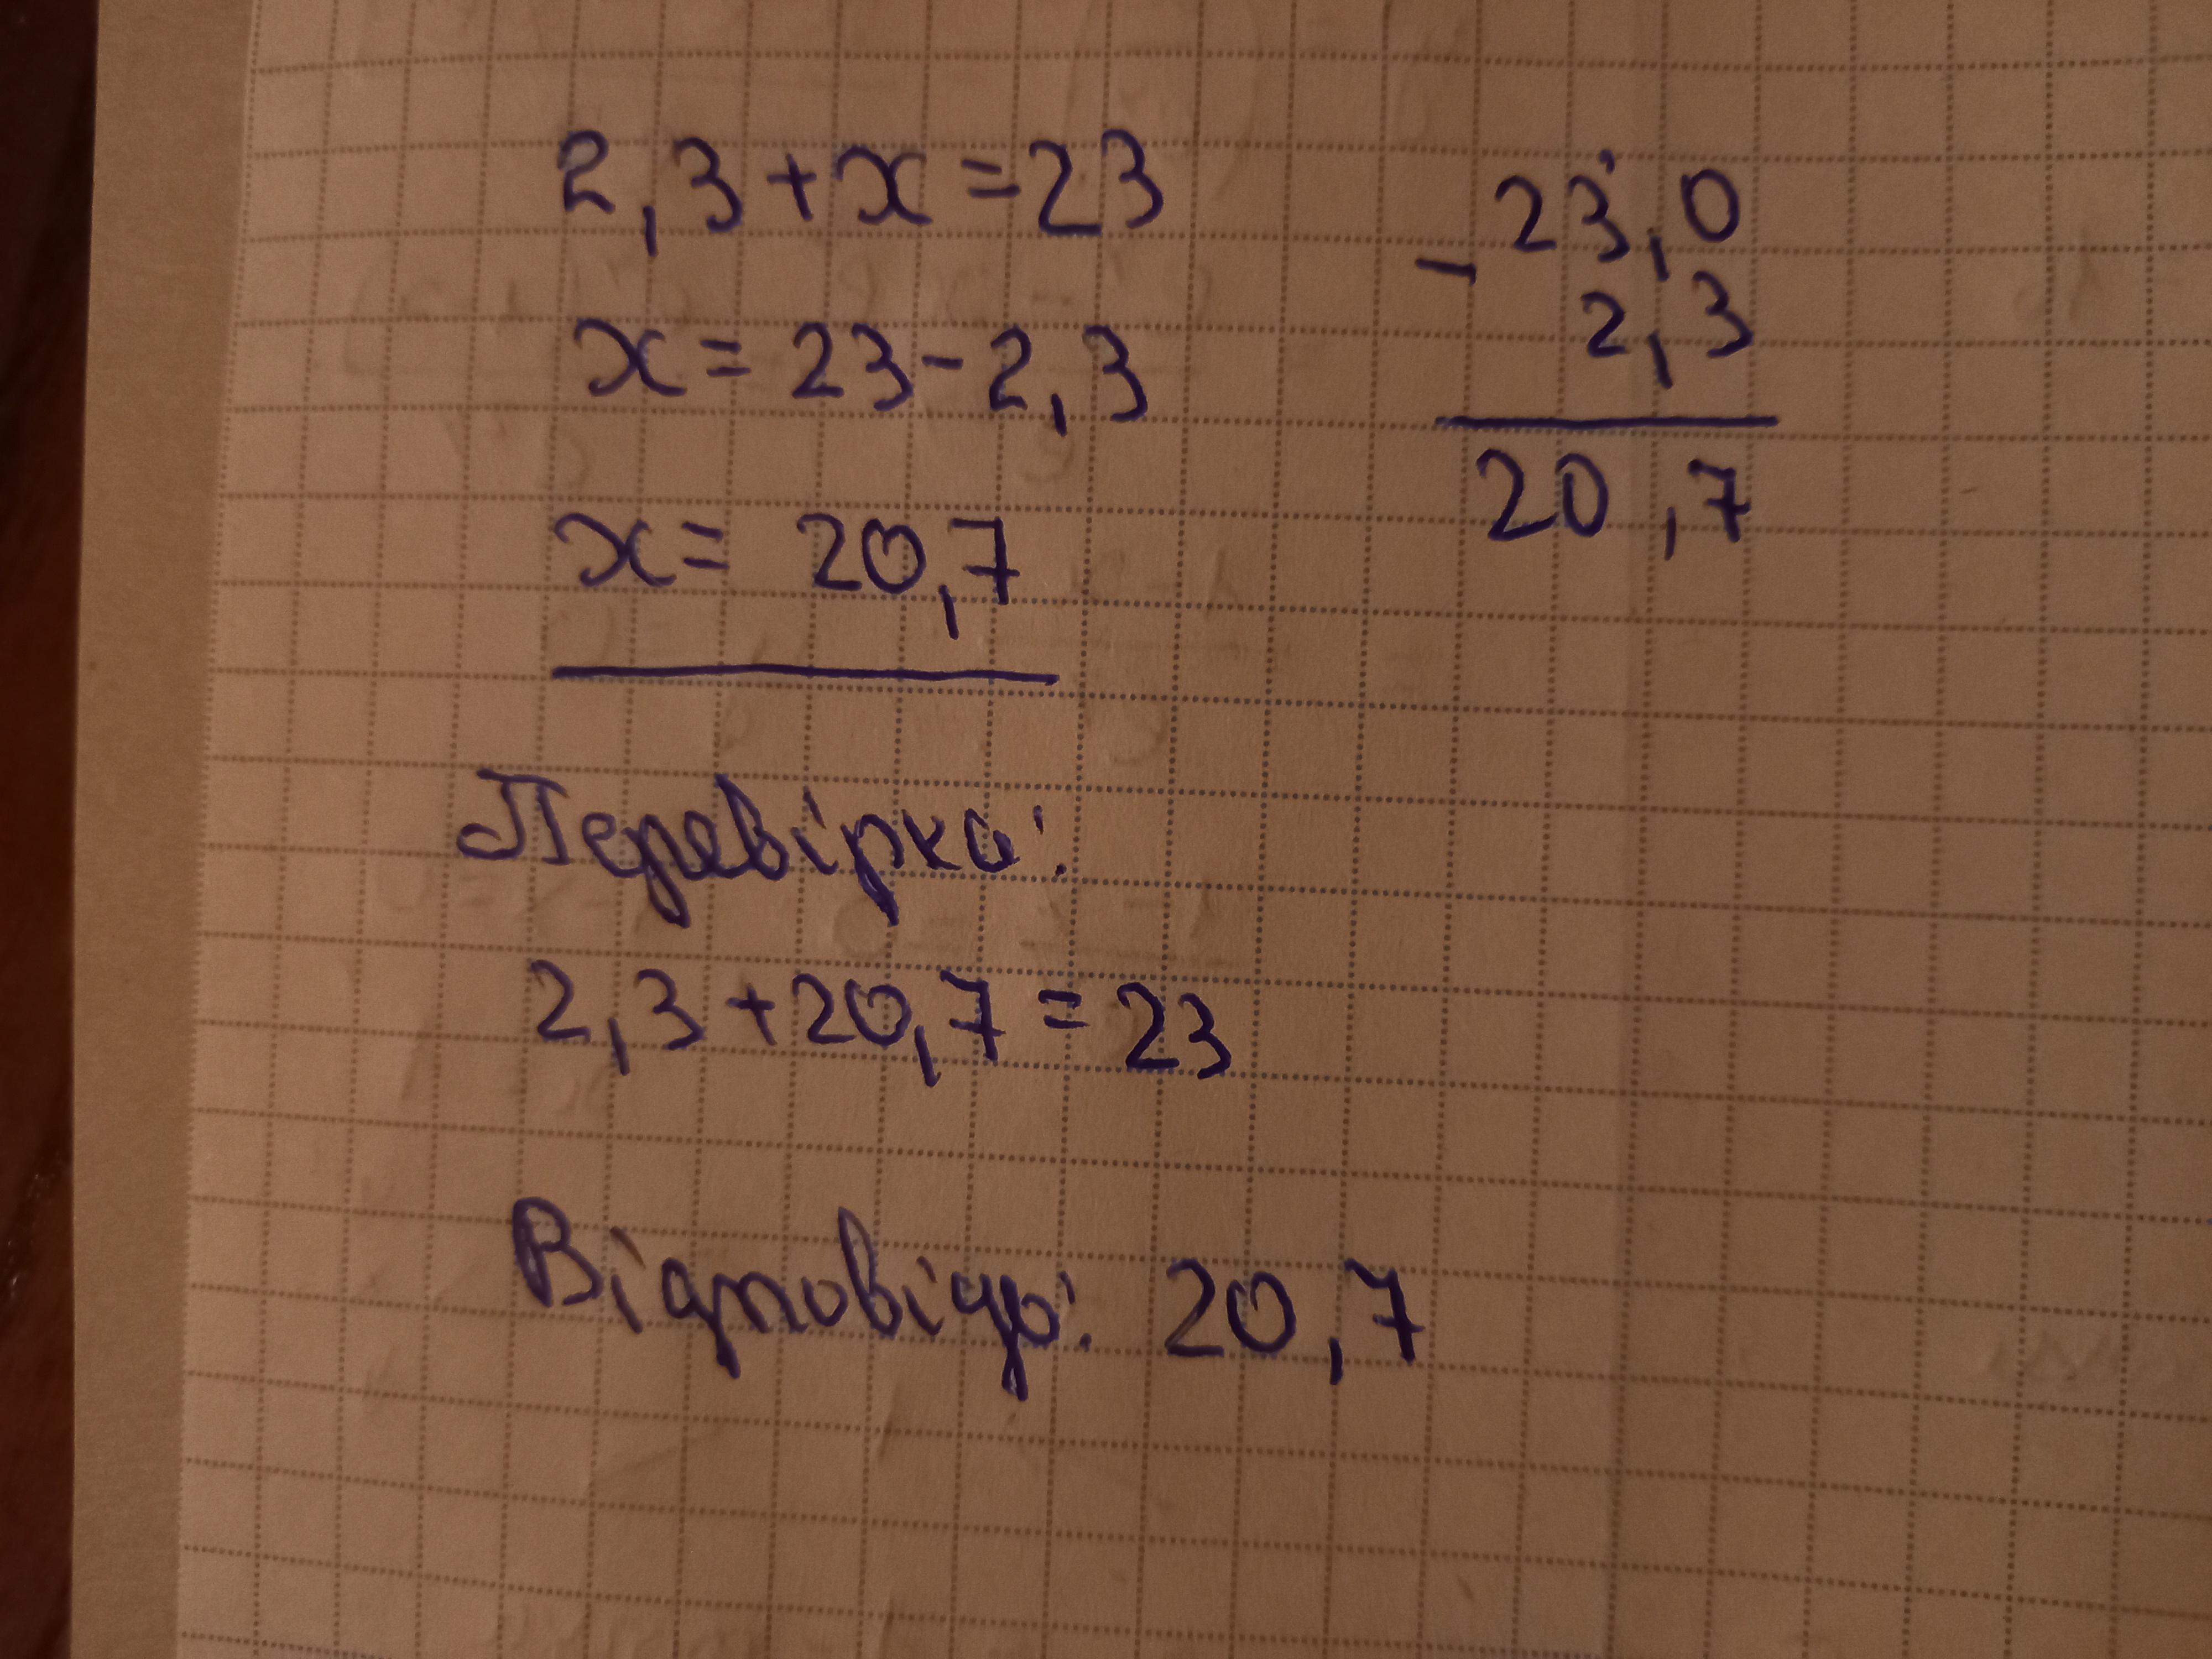 2,3+x=23
x=23-2,3
x= 20,7
-23,0
2,3
20,7
Перевірка:
2,3+20,7=23
Відповідь: 20,7